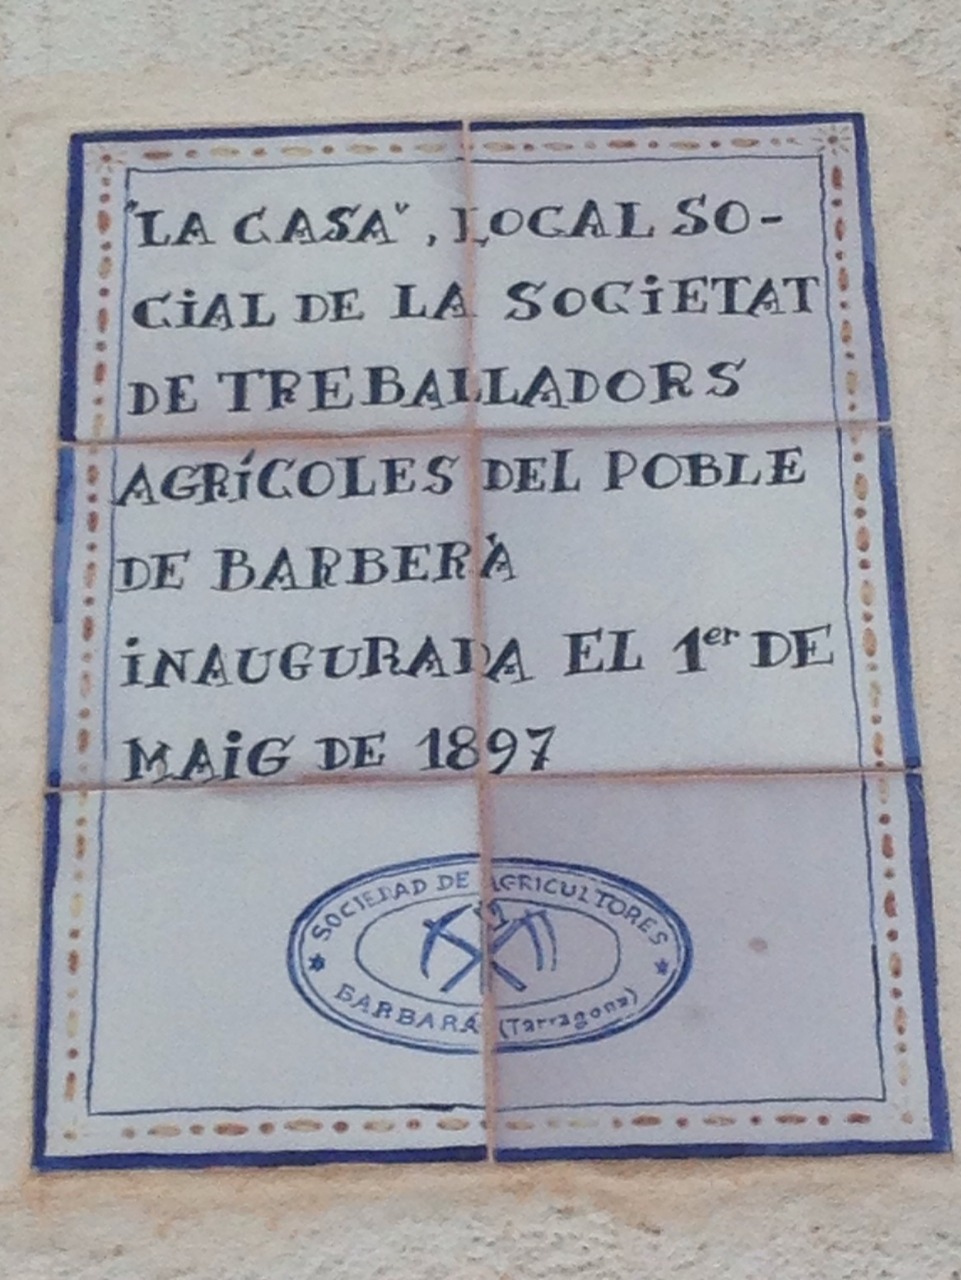 "LA CASA", LOCAL SO-
CiAL DE LA SOCiETAT
DE TREBALLADORS
AGRÍCOLES DEL POBLE
DE BARBERÀ
iNAUGURADA EL 1er DE
MAiG DE 1897
SOCIEDAD DE AGRICULTORES
BARBARÁ (Tarragona)